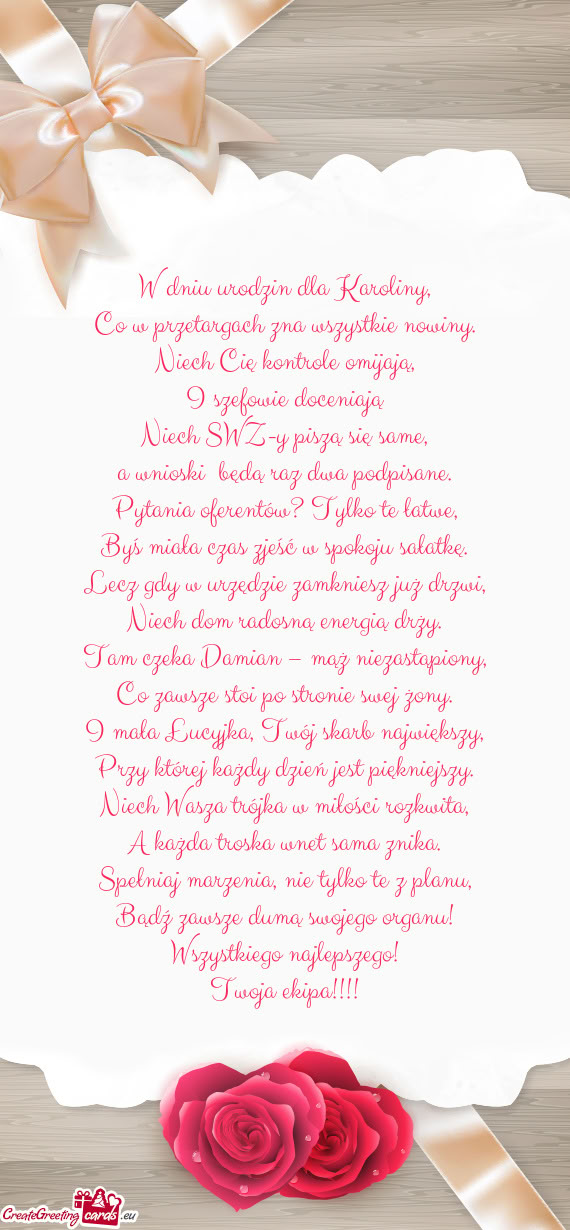 W dniu urodzin dla Karoliny,
Co w przetargach zna wszystkie nowiny.
Niech Cię kontrole omijają,
I szefowie doceniają
Niech SWZ-y piszą się same,
a wnioski będą raz dwa podpisane.
Pytania oferentów? Tylko te łatwe,
Byś miała czas zjeść w spokoju sałatkę.
Lecz gdy w urzędzie zamkniesz już drzwi,
Niech dom radosną energią drży.
Tam czeka Damian – mąż niezastąpiony,
Co zawsze stoi po stronie swej żony.
I mała Łucyjka, Twój skarb największy,
Przy której każdy dzień jest piękniejszy.
Niech Wasza trójka w miłości rozkwita,
A każda troska wnet sama znika.
Spełniaj marzenia, nie tylko te z planu,
Bądź zawsze dumą swojego organu!
Wszystkiego najlepszego!
Twoja ekipa!!!!
CreateGreeting cards .eu